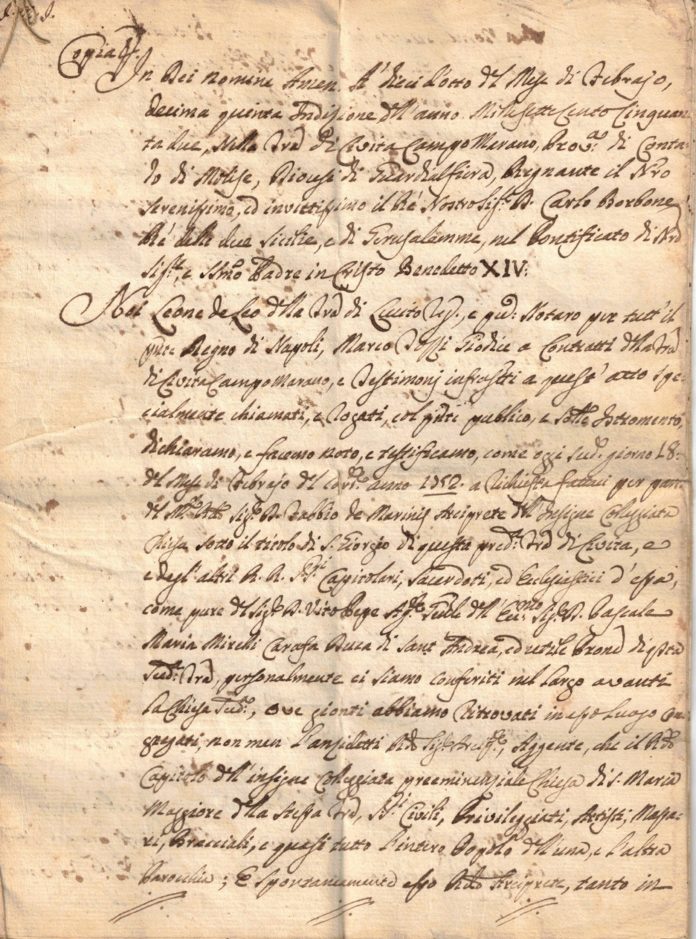 Copia
In Dei nomine Amen. A' dieci dotto del Mese di Febrajo,
decima quinta Indizione dell'anno Mille sette cento cinquan
ta due, nella Trã di Civita Campo Marano, Prov.ª di Conta
do di Molise, Diocesi di Guardialfiera, Regnante il Nro
Serenissimo, ed invittissimo il Ré Nostro Sig.r D. Carlo Borbone
Ré delle due Sicilie, e di Gerusalemme, nel Pontificato di Nro
Sig.r, e Padre in Cristo Benedetto XIV:
Noi Leone de Leo della Trã di Lucito Reg., e Notaro per tutt'il
Regno di Napoli, Marco Giudice a Contratti della Trã
di Civita Campo Marano, e Testimonj infraſtti a quest'atto spe-
cialmente chiamati, e rogati, col pñte publico, e Istromento,
dichiaramo, e facemo noto, e testificamo, come oggi sud.º giorno 18:
del Mese di Febrajo del cor.te anno 1752. a richiesta fattaci per parte
del Sig.r D. Fabbio de Marinis Arciprete dell'Insigne Collegiata
Chiesa sotto il titolo di S. Giorgio di questa pred.ª Trã di Civita, e
e degl'altri R. R. Sig.ri Capitolari, Sacerdoti, ed Eclesiastici d'essa,
come pure del Sig.r D. Vito Pepe Ag.te Gñle dell'Ecc.mo Sig.r D. Pascale
Maria Mirelli Carafa Duca di Sant'Andrea, ed utile Prone di
sud.ª Trã, personalmente ci siamo conferiti nel largo avanti
la Chiesa sud.ª, ove gionti abbiamo ritrovati in esso luogo con
gregati, non men l'anzidetti Rdo Sig.r Arcip.te, Aggente, che il Rdo
Capitolo dell'insigne Collegiata Chiesa di S. Maria
Maggiore della stessa Trã, Sig.ri Civili, Privileggiati, Artisti, Massa-
ri, Bracciali, e quasi tutto l'intero Popolo dell'una, e l'altra
Parocchia; E spontaneamente esso Rdo Arciprete, tanto in